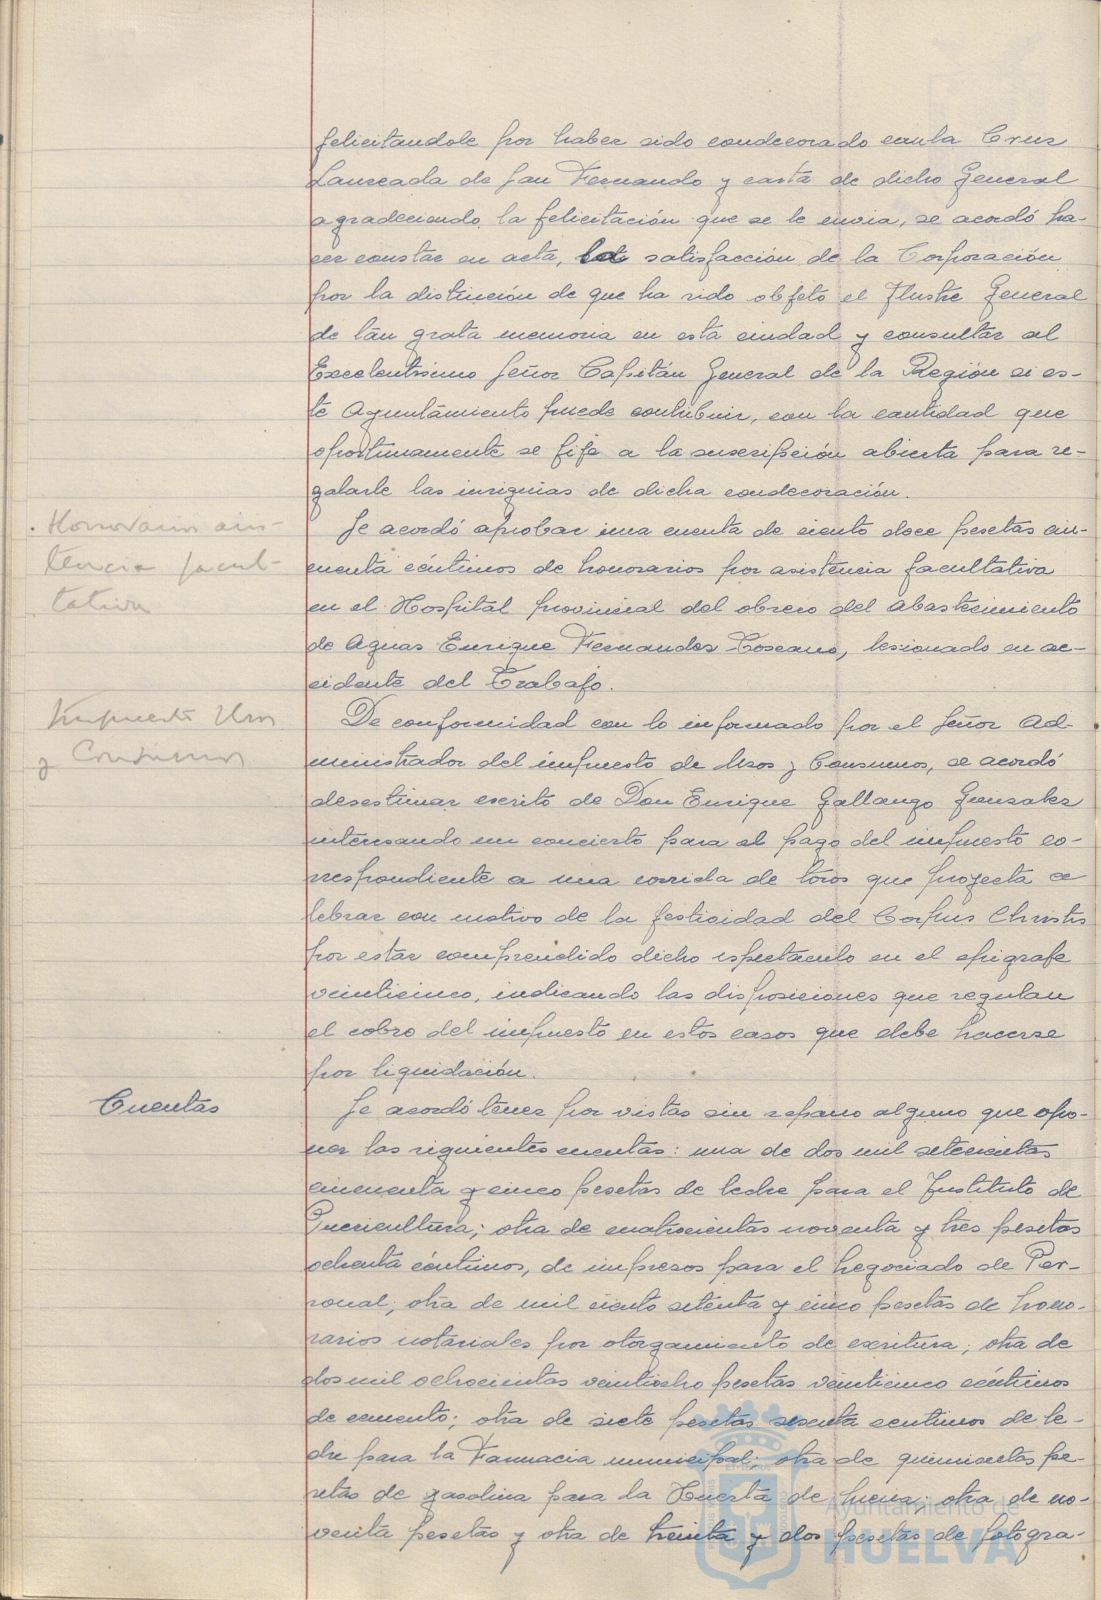 felicitandole por haber sido condecorado con la Cruz
Laureada de San Fernando y carta de dicho General
agradeciendo la felicitación que se le envia, se acordó ha-
cer constar en acta, la satisfacción de la Corporación
por la distinción de que ha sido objeto el Ilustre General
de tan grata memoria en esta ciudad y consultar al
Excelentísimo Señor Capitán General de la Región si es-
te Ayuntamiento puede contribuir, con la cantidad que
oportunamente se fije a la suscripción abierta para re-
galarle las insignias de dicha condecoración.
Honorarios asis-
tencia facul-
tativa
Se acordó aprobar una cuenta de ciento doce pesetas cin-
cuenta céntimos de honorarios por asistencia facultativa
en el Hospital provincial del obrero del Abastecimiento
de Aguas Enrique Fernandez Toscano, lesionado en ac-
cidente del Trabajo.
Impuesto Usos
y Consumos
De conformidad con lo informado por el Señor Ad-
ministrador del impuesto de Usos y Consumos, se acordó
desestimar escrito de Don Enrique Gallango Gonzalez
interesando un concierto para el pago del impuesto co-
rrespondiente a una corrida de toros que proyecta ce
lebrar con motivo de la festividad del Corpus Christis
por estar comprendido dicho espectaculo en el epigrafe
veinticinco, indicando las disposiciones que regulan
el cobro del impuesto en estos casos que debe hacerse
por liquidación.
Cuentas
Se acordó tener por vistas sin reparo alguno que opo-
ner las siguientes cuentas: una de dos mil setecientas
cincuenta y cinco pesetas de leche para el Instituto de
Puericultura; otra de cuatrocientas noventa y tres pesetas
ochenta céntimos, de impresos para el Negociado de Per-
sonal; otra de mil ciento setenta y cinco pesetas de hono-
rarios notariales por otorgamiento de escritura; otra de
dos mil ochocientas veintiocho pesetas veinticinco céntimos
de cemento; otra de siete pesetas sesenta centimos de le-
che para la Farmacia municipal; otra de quinientas pe-
setas de gasolina para la Huerta de Mena; otra de no-
venta pesetas y otra de treinta y dos pesetas de fotogra-
Ayuntamiento de
HUELVA